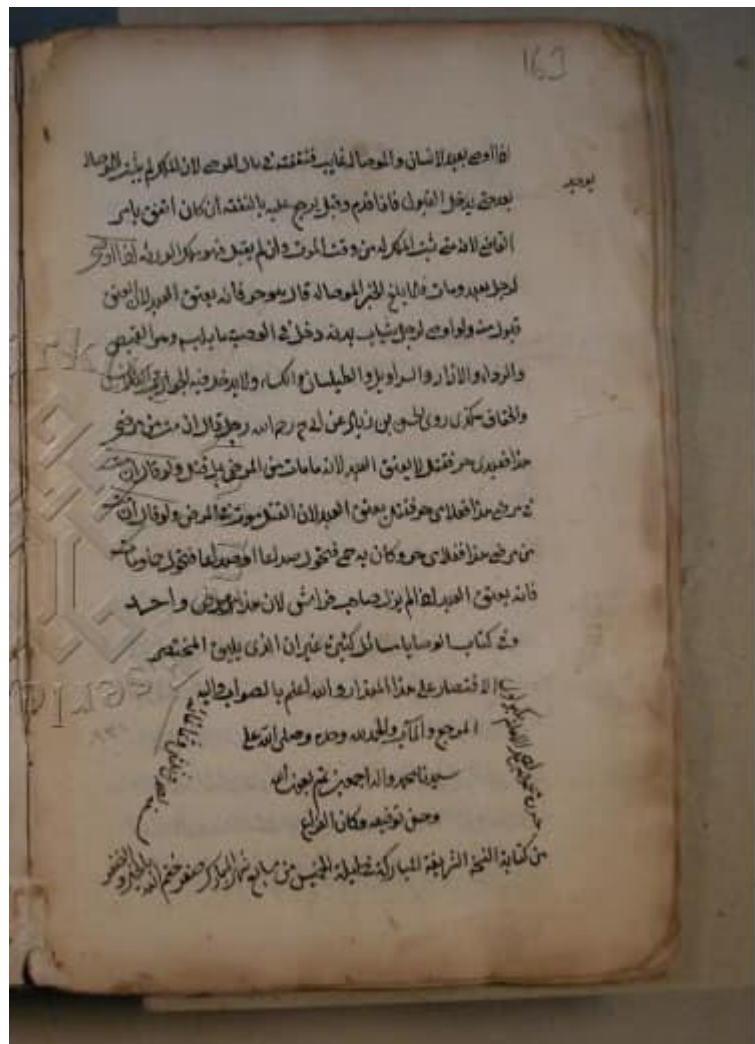 163
اذا اوصى بعبد لانسان والموصى له غايب فنفقته في مال الموصى لان الملك لم يثبت للموصى له
بعد حتى يدخل القبول فاذا قدم وقبل يرجع عليه بالنفقة ان كان انفق بامر
القاضي لانه متى ثبت الملك له من وقت الموت وان لم يقبل فهو ملك الورثة اذا اوصى
لرجل بعبد ومات فلما بلغ الخبر الموصى له قال هو حر فانه يعتق العبد لان العتق
قبول منه ولو اوصى لرجل بثياب بدنه دخل في الوصية ما يلبس وهو القميص
والرداء والازار والسراويل والطيلسان والكساء ولا يدخل فيه
والخفاف روى الحسن بن زياد عن ابي ح رحمه الله رجل قال ان مت من مرضي
هذا فعبدي حر فقتل لا يعتق العبد لانه ما مات من المرض بل قتل ولو قال ان مت
في مرضي هذا فغلامي حر فقتل يعتق العبد لان القتل موت في المرض ولو قال ان مت
من مرضي هذا فغلامي حر وكان به حمى فتحول صداعا او صداعا فتحول حمى ومات
فانه يعتق العبد اذا لم يزل صاحب فراش لان هذا مرض واحد
وفي كتاب الوصايا مسائل كثيرة غير ان الذي يليق المختصر
الاقتصار على هذا المقدار والله اعلم بالصواب واليه
المرجع والمآب والحمد لله وحده وصلى الله على
سيدنا محمد واله اجمعين تم بعون الله
وحسن توفيقه وكان الفراغ
من كتابة النسخة الشريفة المباركة في ليلة الخميس من شهر المبارك صفر ختم الله بالخير والظفر